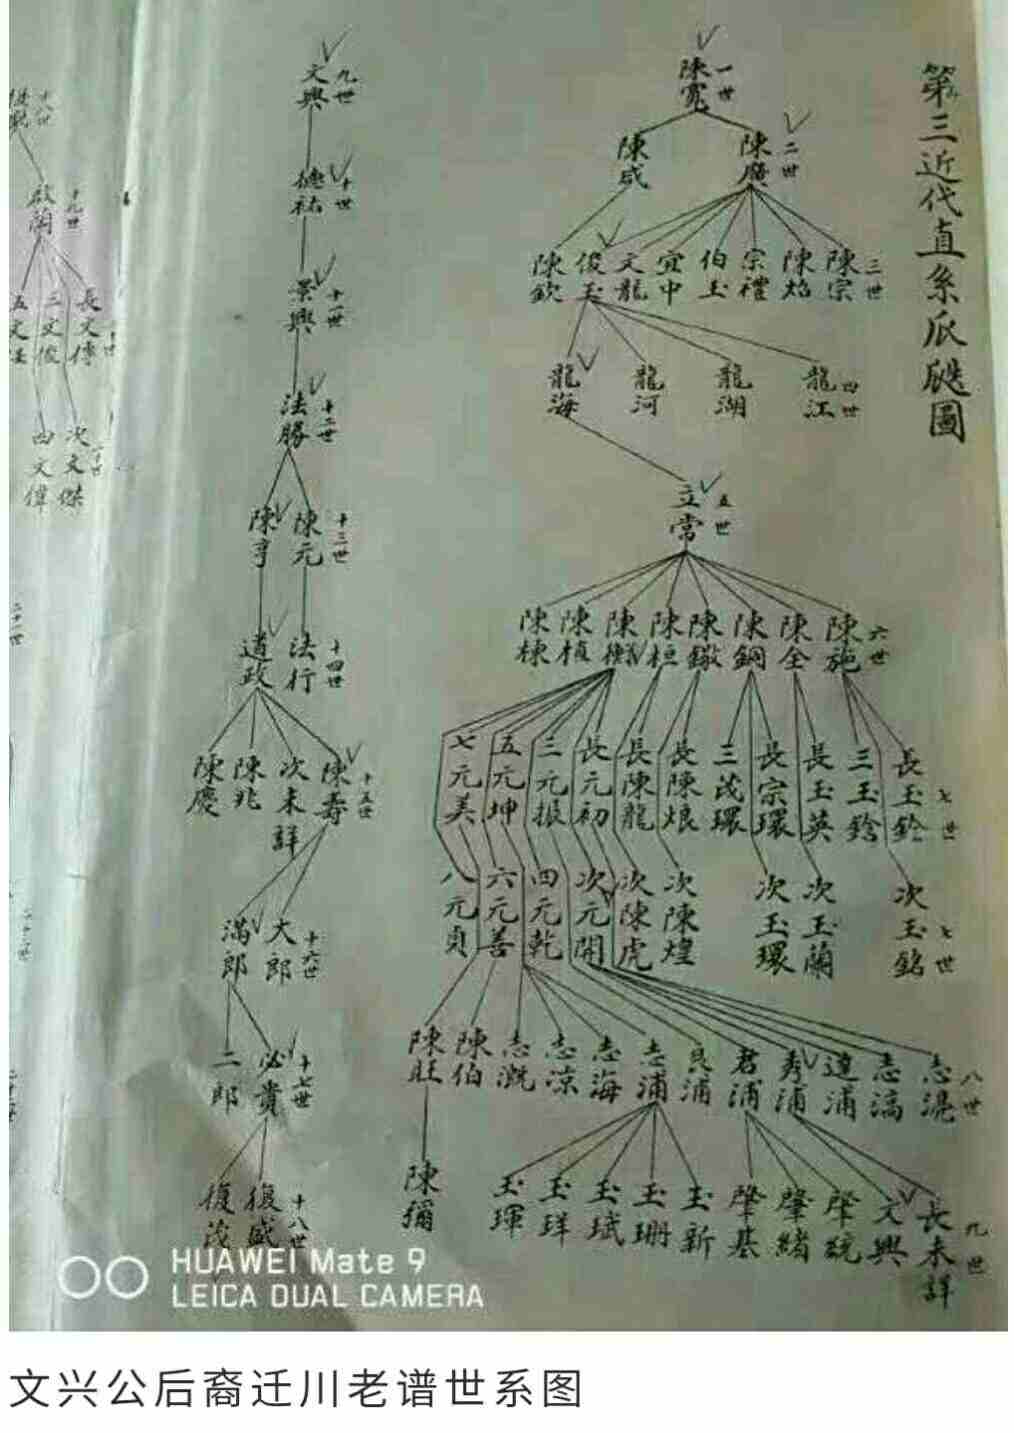 第三近代直系瓜瓞圖
一世
陳寬
二世
陳廣
陳咸
三世
陳宗
陳焰
宗禮
伯玉
宜中
文龍
俊玉
陳欽
四世
龍江
龍湖
龍河
龍海
五世
立常
六世
陳施
陳全
陳鋼
陳鏾
陳桓
陳
陳楨
陳棟
七世
長玉銓
三玉鎗
長玉英
長宗環
三茂環
長陳烺
長陳龍
長元初
三元振
五元坤
七元美
七世
次玉銘
次玉蘭
次玉環
次陳煌
次陳虎
次元開
四元乾
六元善
八元貞
八世
志混
志滈
遵浦
秀浦
君浦
良浦
志浦
志海
志凉
志溉
陳伯
陳旺
九世
長未詳
文興
肇統
肇緒
肇基
玉新
玉珊
玉珷
玉珜
玉琿
陳彌
九世
文興
十世
德祐
十一世
景興
十二世
法勝
十三世
陳元
陳亨
十四世
法行
道政
十五世
陳壽
次未詳
陳兆
陳慶
十六世
大郎
滿郎
十七世
必貴
二郎
十八世
復盛
復茂
十八世
十九世
啟蘭
長文傳
三文俊
五文
次文傑
四文偉
HUAWEI Mate 9
LEICA DUAL CAMERA
文兴公后裔迁川老谱世系图